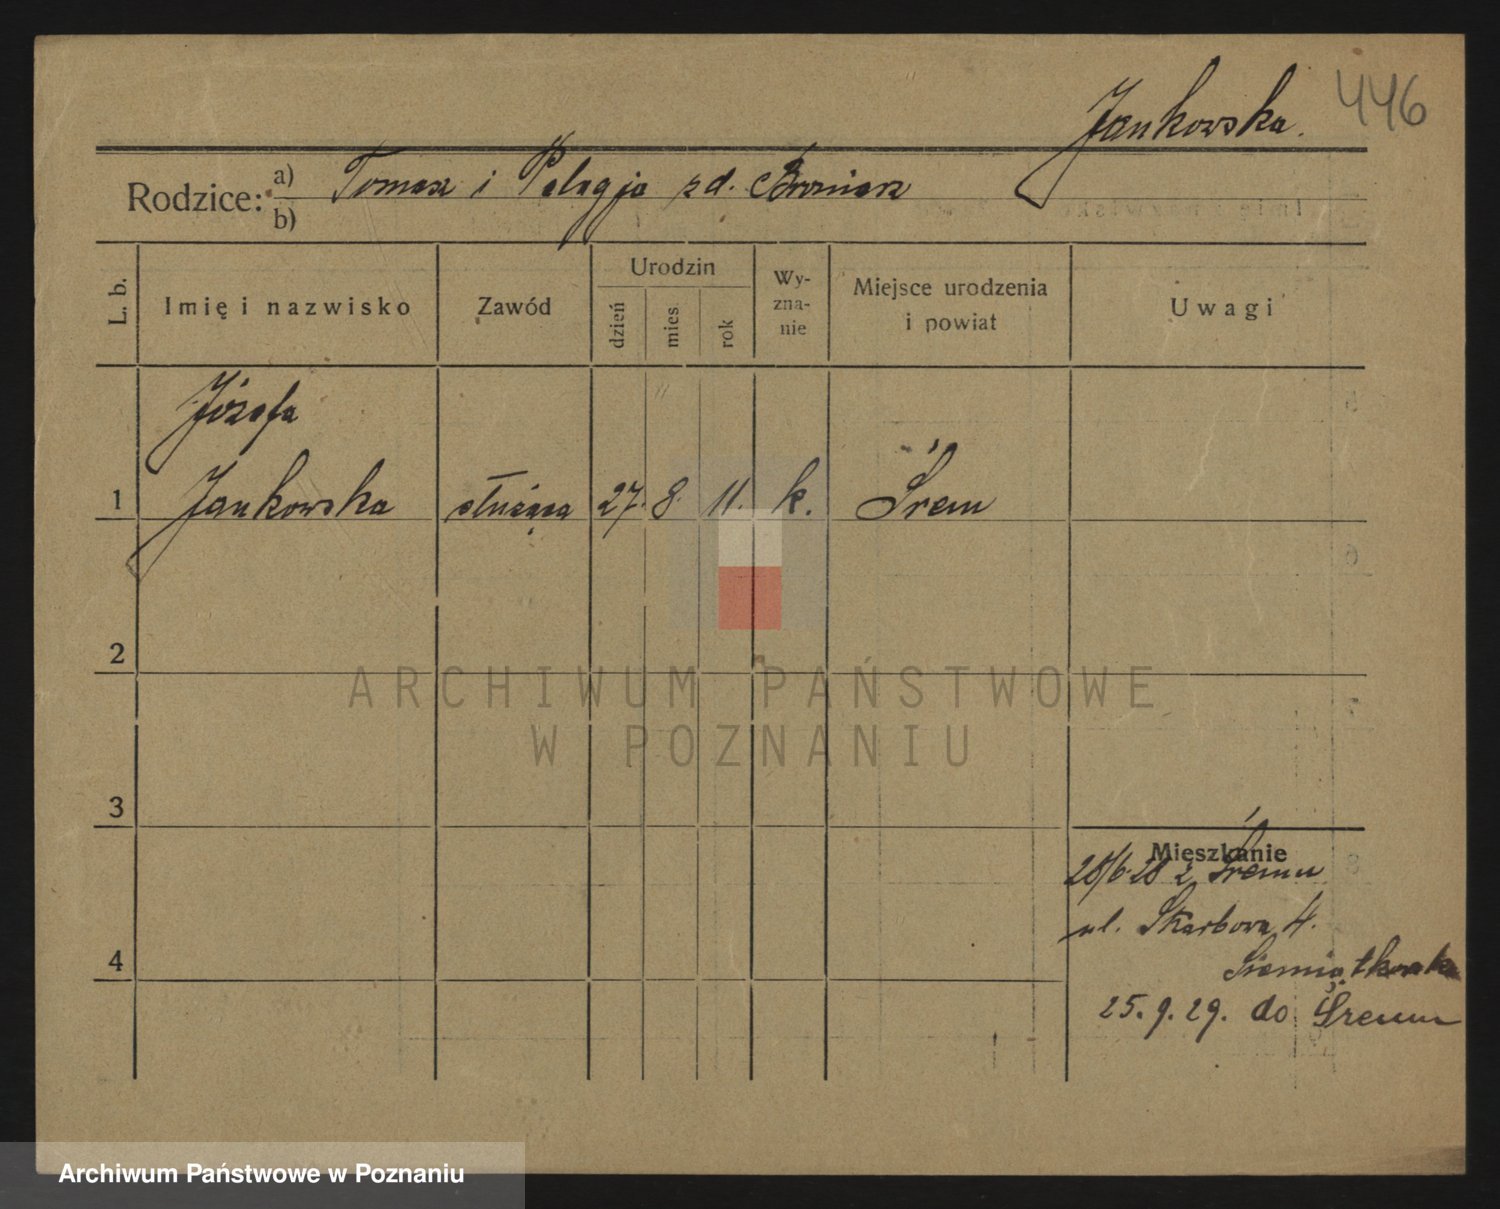 446
Jankowska.
Rodzice: a) Tomasz i Pelagja zd. Broniarz
b)
L. b.
Imię i nazwisko
Zawód
Urodzin
dzień
mies
rok
Wy-
zna-
nie
Miejsce urodzenia
i powiat
Uwagi
Józefa
1 Jankowska służąca 27. 8. 11. k. Śrem
2
ARCHIWUM PAŃSTWOWE
W POZNANIU
3
Mieszkanie
28/6 28 z Śremu
ul. Skarbowa 4.
4
Siemiątkowska
25. 9. 29. do Śremu
Archiwum Państwowe w Poznaniu